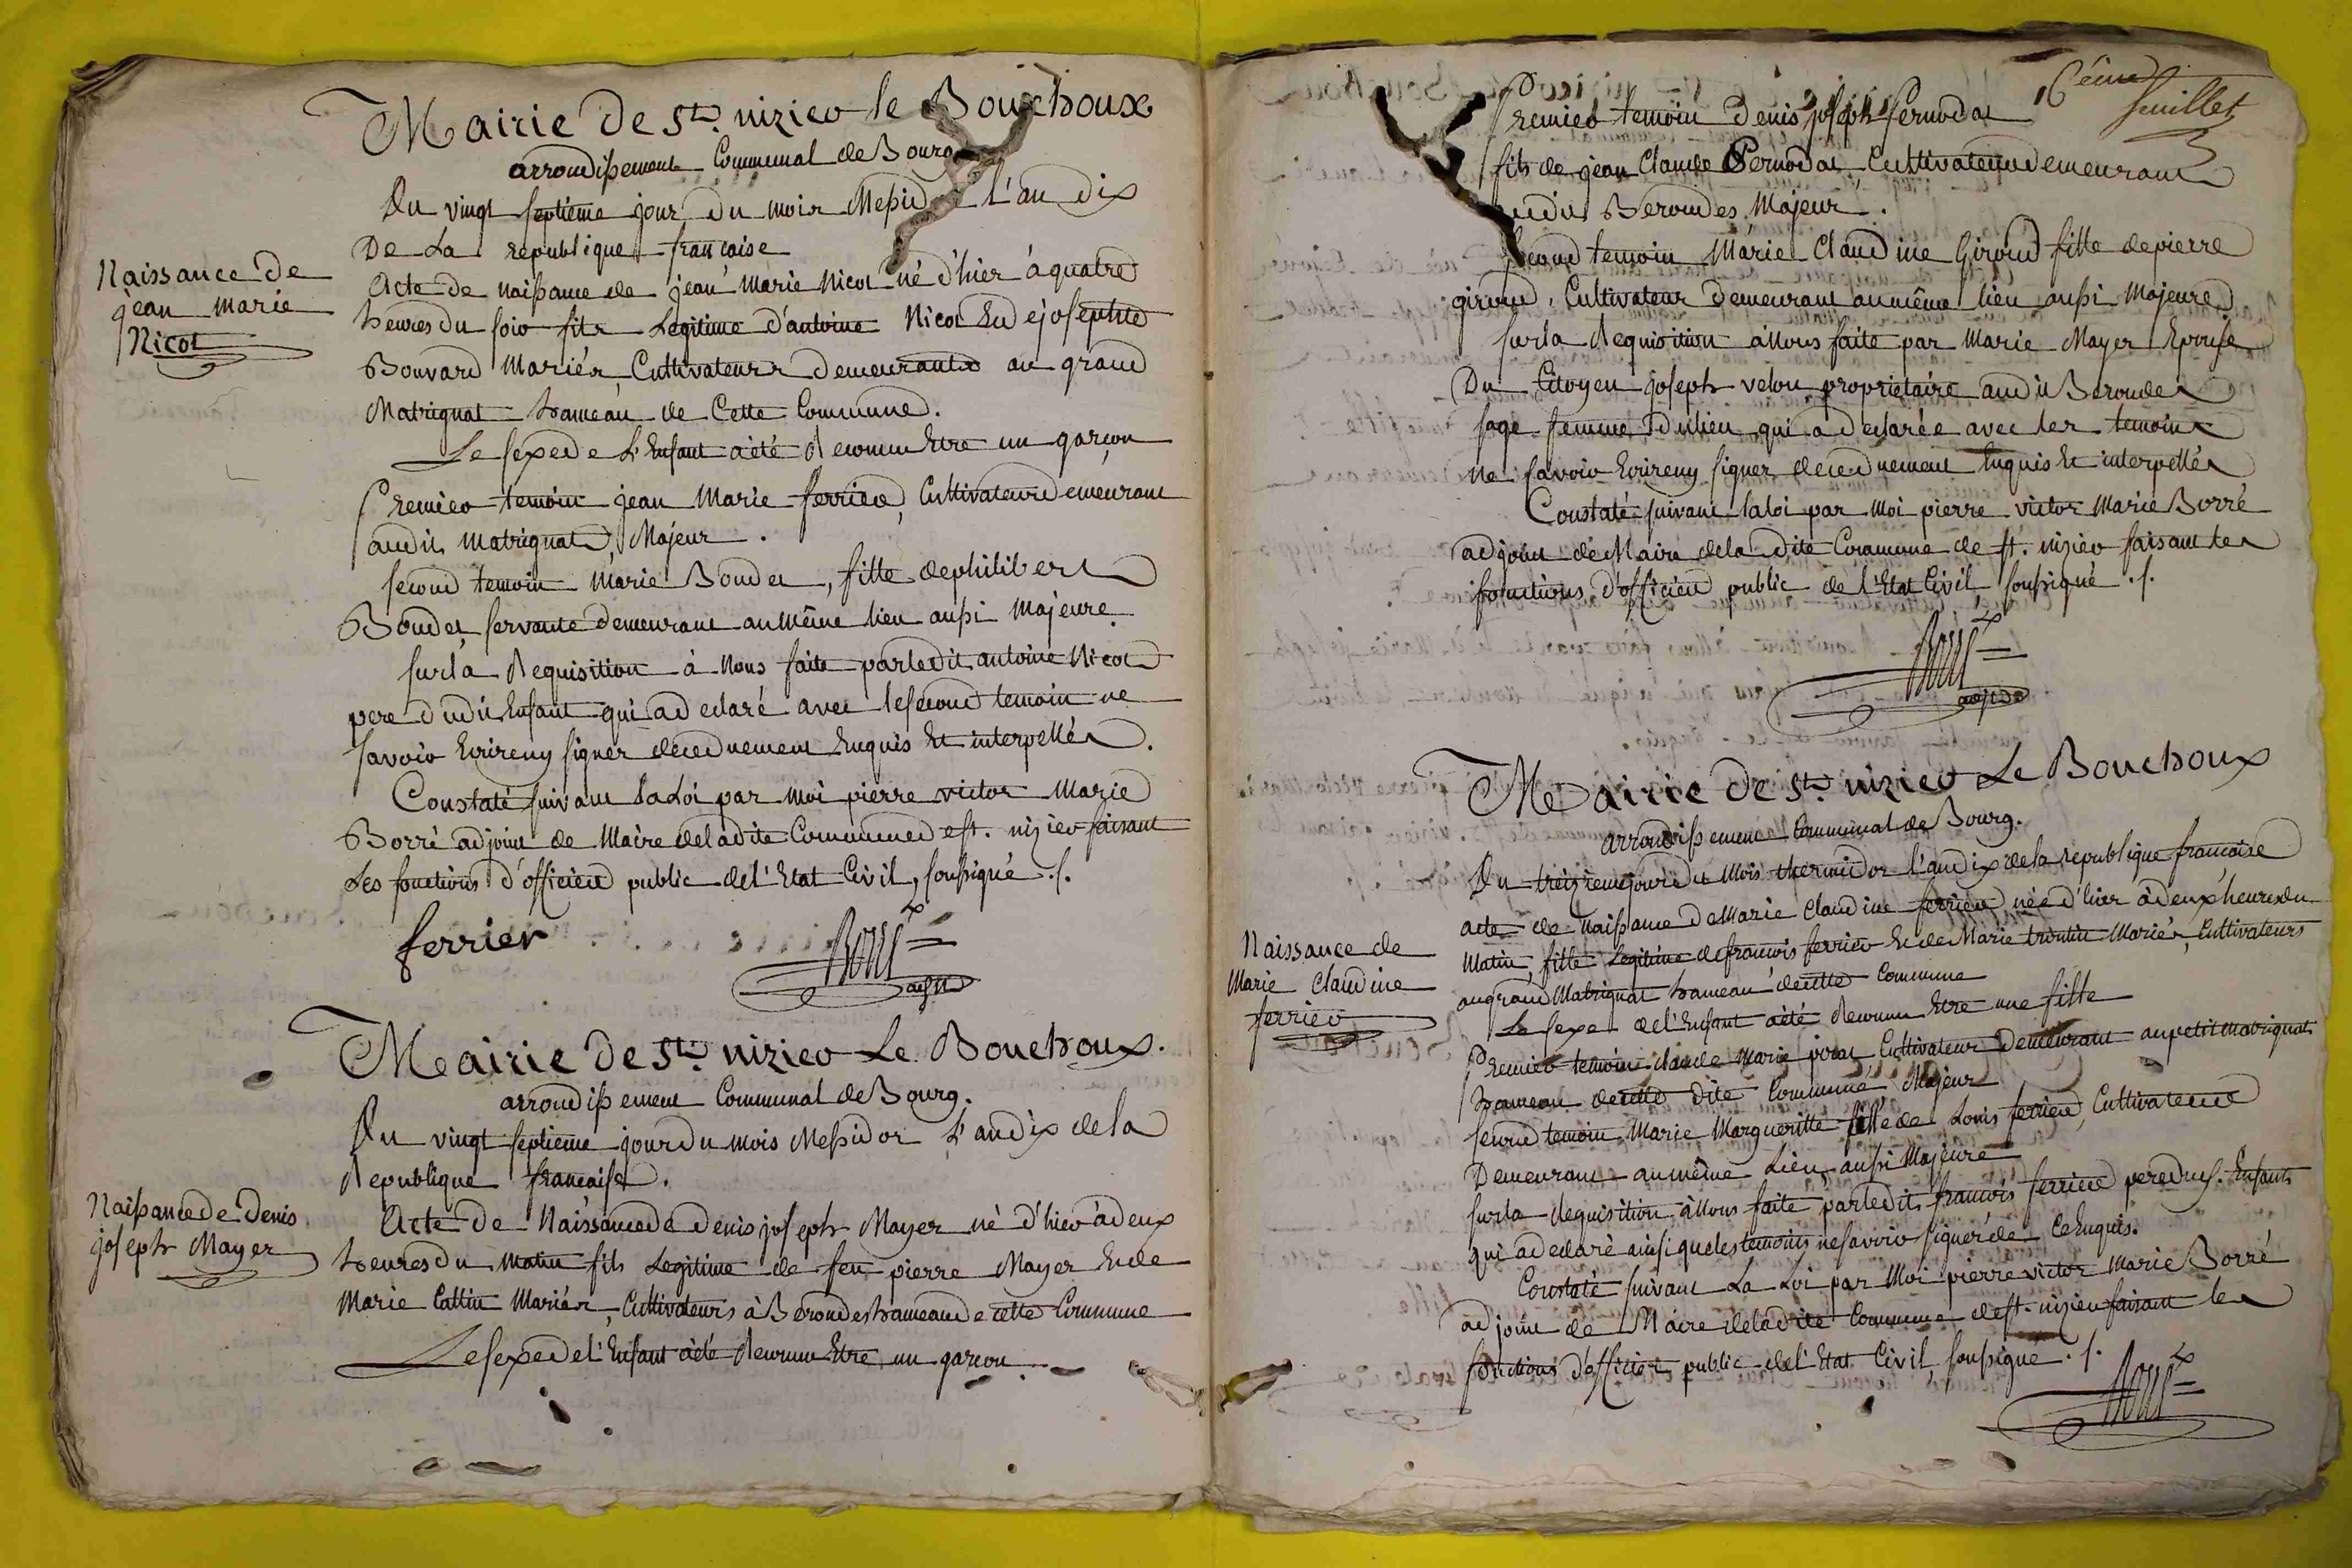 Mairie De St. nizier le Bouchoux
arrondissement Communal de Bourg
Du vingt septième jour du mois Messid l'an dix
De La republique française
Naissance de
jean marie
Nicot
Acte de naissance de jean Marie Nicot né d'hier à quatre
heures du soir fils Legitime d'antoine Nicot Et de josephte
Bouvard Mariés, Cultivateurs demeurants au grand
Matrignat hameau de Cette Commune.
Le sexe de L'Enfant a été Reconnu Etre un garçon
Premier temoin jean Marie ferrier, Cultivateur demeurant
audit Matrignat, Majeur.
second temoin Marie Boudet, fille de philibert
Boudet, servante demeurant au même lieu aussi Majeure.
sur la Requisition à Nous faite par ledit antoine Nicot
pere dudit Enfant qui a declaré avec le second temoin ne
savoir Ecrire ny signer de ce duement Enquis Et interpellés.
Constaté suivant la Loi par moi pierre victor Marie
Borré adjoint de Maire de la dite Commune de st. nizier faisant
Les fonctions d'officier public de l'Etat Civil, soussigné ./.
ferrier
Borré
Mairie De St. nizier Le Bouchoux.
arrondissement Communal de Bourg.
Du vingt septième jour du mois Messidor L'an dix de la
Republique française.
Naissance de Denis
joseph Mayer
Acte de Naissance de Denis joseph Mayer né d'hier à deux
heures du matin fils Legitime de feu pierre Mayer Et de
Marie Cattin Mariés, Cultivateurs à Beroudes hameau de cette Commune
Le sexe de l'Enfant a été Reconnu Etre un garçon
16ème
feuillet
Premier temoin Denis joseph Pernodat
fils de jean Claude Pernodat Cultivateur demeurant
audit Beroudes, Majeur.
second temoin Marie Claudine Giroud fille de pierre
giroud, Cultivateur demeurant au même lieu aussi Majeure.
sur la Requisition à Nous faite par Marie Mayer Epouse
Du Citoyen joseph velon proprietaire audit Beroudes
sage femme dudit lieu qui a declarée avec les temoins
ne savoir Ecrire ny signer de ce duement Enquis Et interpellés
Constaté suivant la loi par moi pierre victor Marie Borré
adjoint de Maire de la dite Commune de st. nizier faisant les
fonctions d'officier public de l'Etat Civil, soussigné ./.
Borré
Mairie De St. nizier Le Bouchoux
arrondissement Communal de Bourg.
Du treizieme jour du Mois thermidor l'an dix de la republique française
Naissance de
Marie Claudine
ferrier
acte de Naissance de Marie Claudine ferrier née d'hier à deux heures du
Matin, fille Legitime de françois ferrier Et de Marie trontin Mariés, Cultivateurs
au grand Matrignat hameau de cette Commune
Le sexe de l'Enfant a été Reconnu Etre une fille
Premier temoin claude Marie Cultivateur Demeurant au petit Matrignat
hameau de cette dite Commune Majeur
second temoin Marie Margueritte fille de Louis ferrier, Cultivateur
Demeurant au même Lieu, aussi Majeure
sur la Requisition à Nous faite par ledit françois ferrier pere dud. Enfant
qui a declaré ainsi que les temoins ne savoir signer de ce Enquis.
Constaté suivant La Loi par Moi pierre victor Marie Borré
adjoint de Maire de la dite Commune de st. nizier faisant les
fonctions d'officier public de l'Etat Civil soussigné ./.
Borré